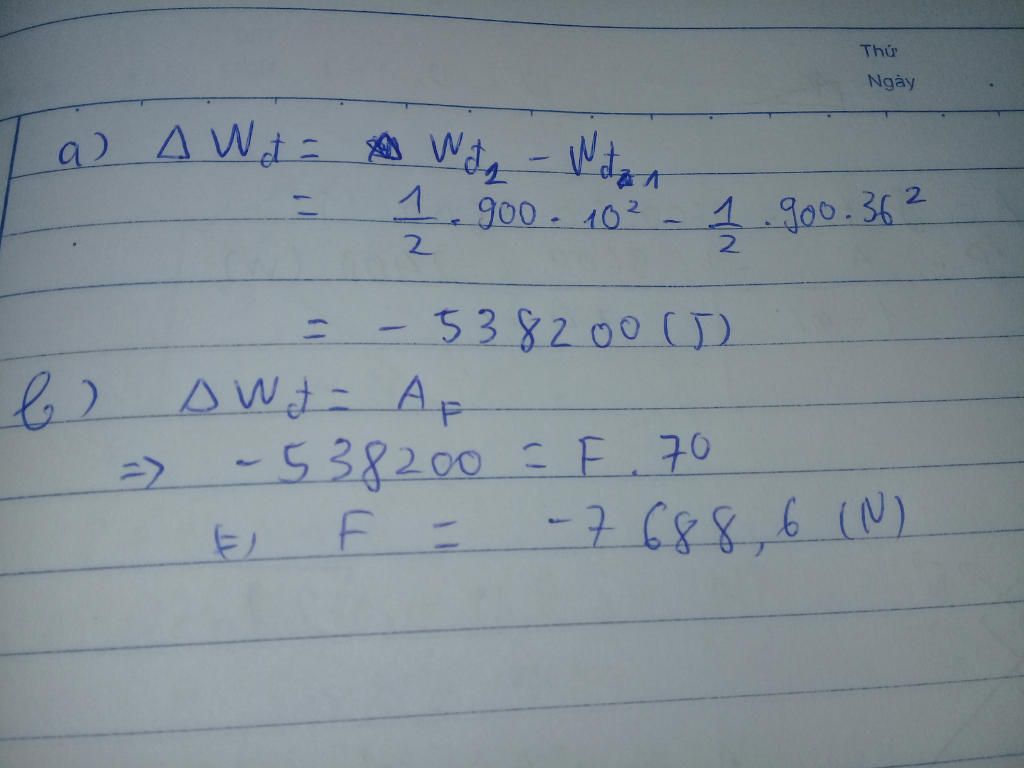 Thứ
Ngày
a) Δ Wđ = Wđ2 - Wđ1
= 1/2 . 900 . 10² - 1/2 . 900 . 36²
= - 538200 (J)
b) Δ Wđ = AF
=> - 538200 = F . 70
F = -7688,6 (N)